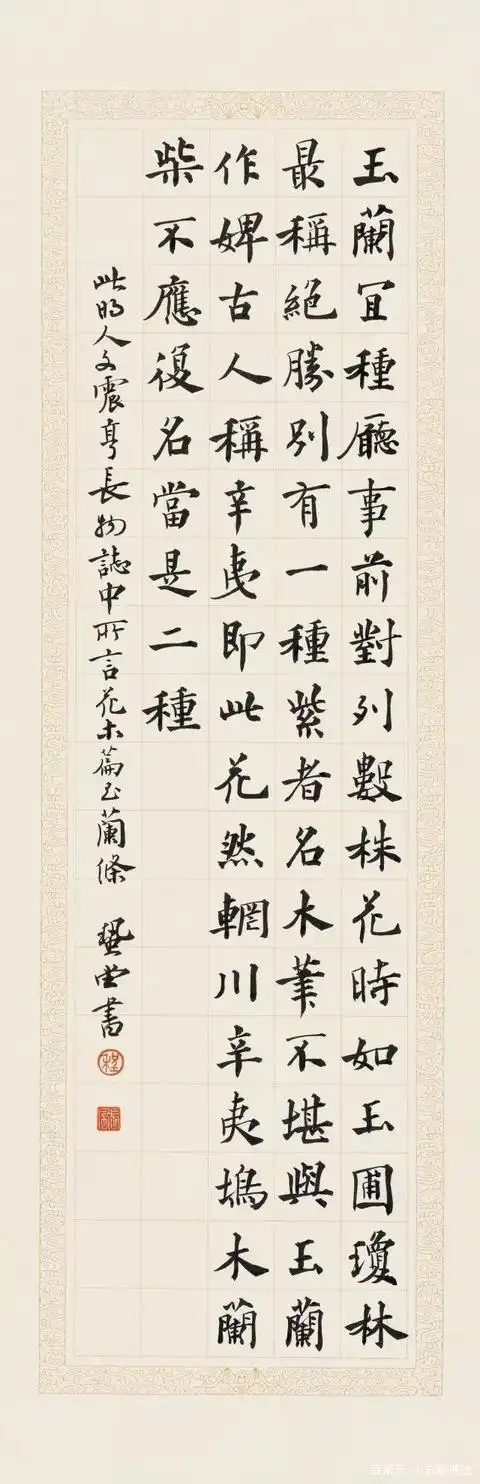 玉蘭宜種廳事前對列數株花時如玉圃瓊林
最稱絕勝別有一種紫者名木筆不堪與玉蘭
作婢古人稱辛夷即此花然輞川辛夷塢木蘭
柴不應復名當是二種
此明人文震亨長物誌中所言花木篇玉蘭條 曲書